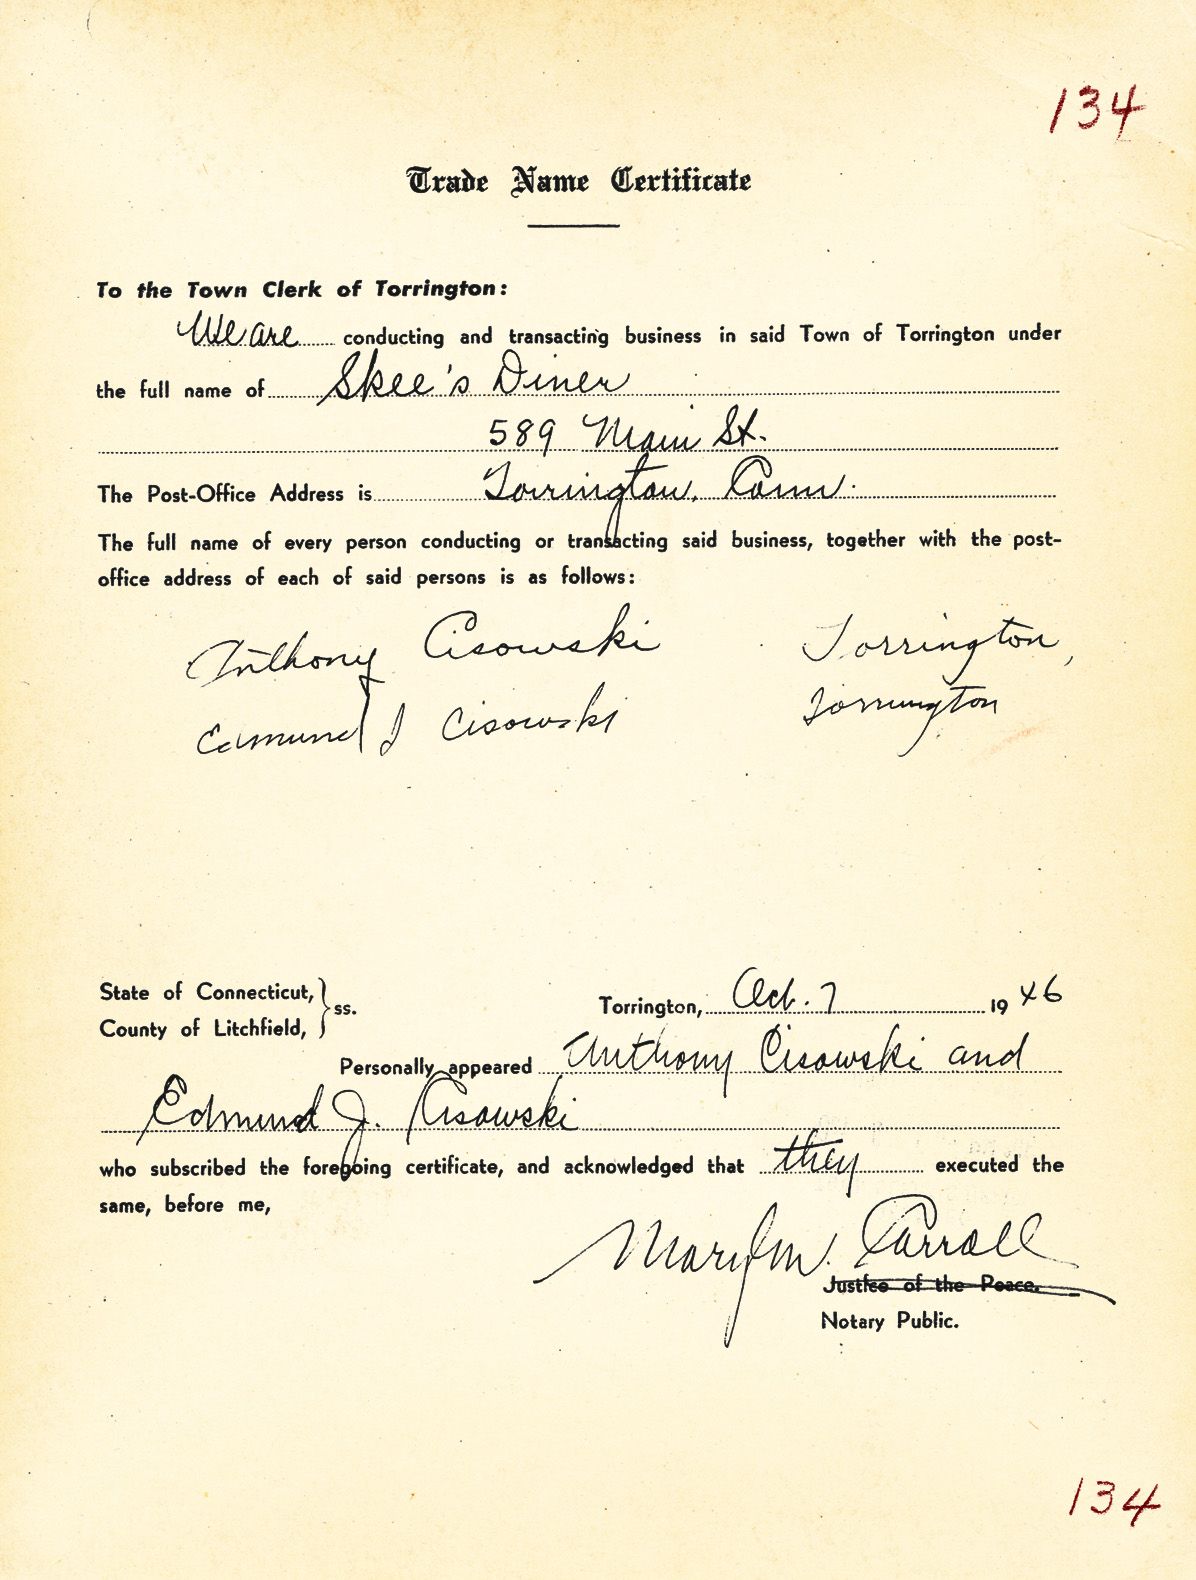 134
Trade Name Certificate
To the Town Clerk of Torrington:
We are conducting and transacting business in said Town of Torrington under
the full name of Skee's Diner
589 Main St.
The Post-Office Address is Torrington, Conn.
The full name of every person conducting or transacting said business, together with the post-
office address of each of said persons is as follows:
Anthony Cisowski Torrington,
Edmund J Cisowski Torrington
State of Connecticut, } ss. Torrington, Oct. 7 1946
County of Litchfield,
Personally appeared Anthony Cisowski and
Edmund J. Cisowski
who subscribed the foregoing certificate, and acknowledged that they executed the
same, before me,
Mary M. Carroll
Justice of the Peace.
Notary Public.
134